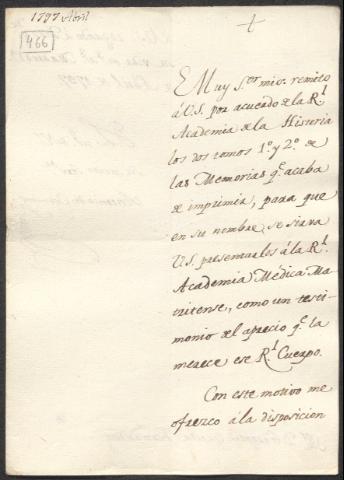 1797 Abril
466
+
Muy S.or mio: remito
á V.S. por acuerdo de la R.l
Academia de la Historia
los dos tomos 1.º y 2.º de
las Memorias q.e acaba
de imprimir, para que
en su nombre se sirva
V.S. presentarlos á la R.l
Academia Medica Ma-
tritense, como un testi-
monio del aprecio q.e la
merece ese R.l Cuerpo.
Con este motivo me
ofrezco á la disposicion